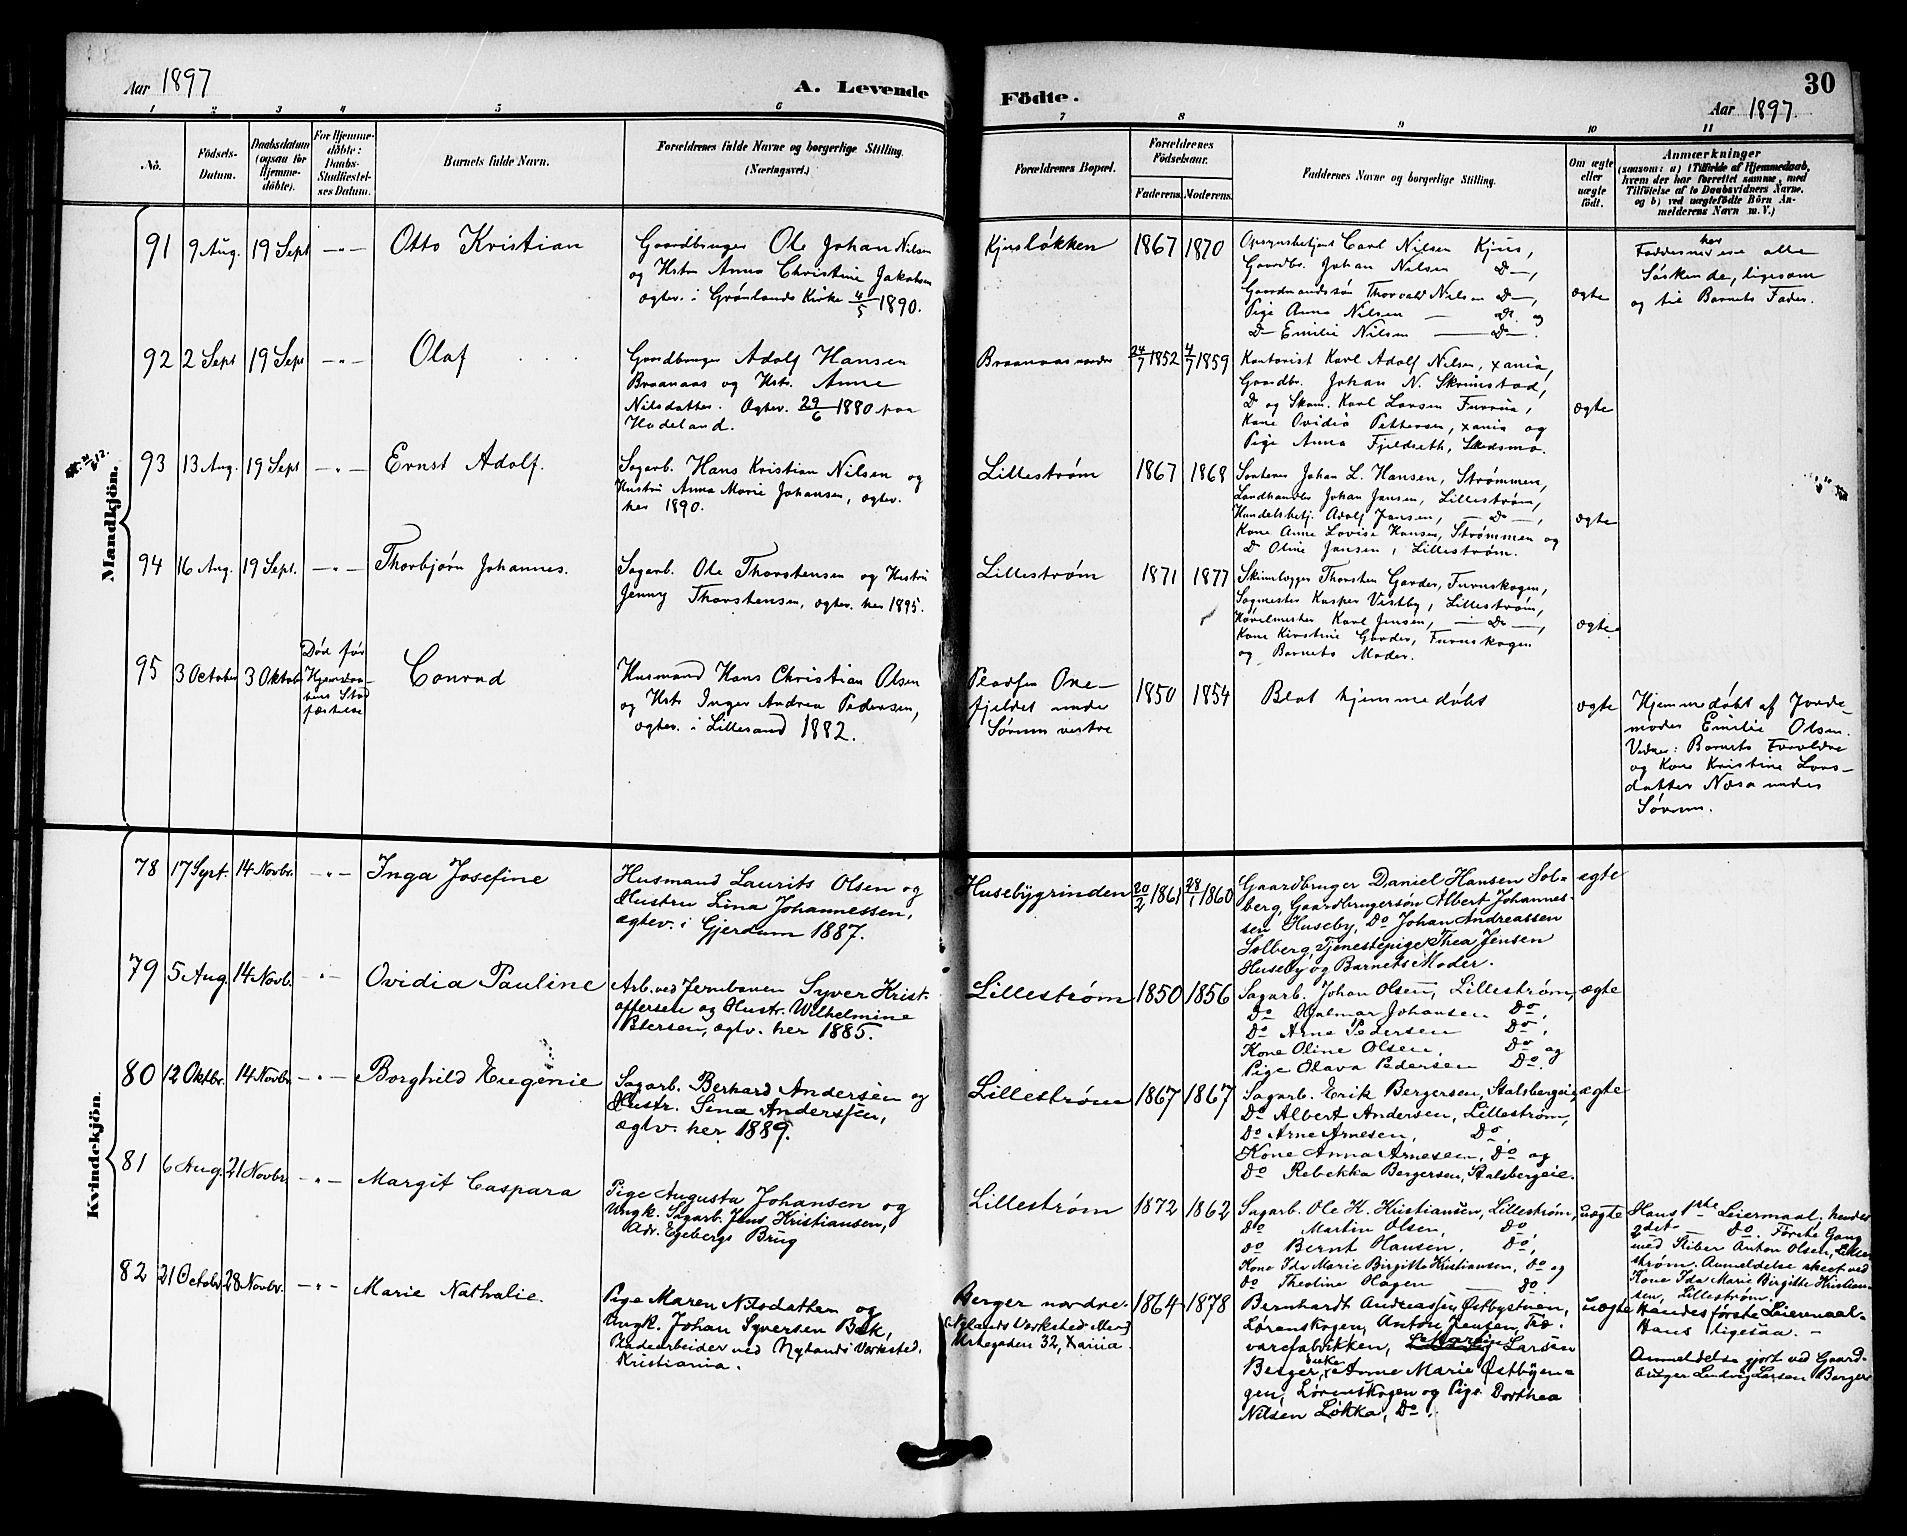 Aar 1897
A. Levende
Födte.
30
Aar 1897.
1 2 3 4 5 6 7 8 9 10 11
No.
Födsels-
Datum.
Daabsdatum
(ogsaa for
Hjemme-
döbte).
For Hjemme-
döbte:
Daabs-
Stadfæstel-
ses Datum.
Barnets fulde Navn.
Forældrenes fulde Navne og borgerlige Stilling.
(Næringsvei.)
Forældrenes Bopæl.
Forældrenes
Födselsaar.
Faderens.
Moderens.
Faddernes Navne og borgerlige Stilling.
Om ægte
eller
uægte
födt.
Anmærkninger
(saasom: a) i Tilfælde af Hjemmedaab,
hvem der har forrettet samme, med
Tilföielse af to Daabsvidners Navne.
og b) ved uægtefödte Börn An-
melderens Navn m. V.)
Mandkjön.
91
9 Aug.
19 Sept
-"-
Otto Kristian
Gaardbruger Ole Johan Nilsen
og Hstr Anna Christine Jakobsen
ægtev. i Grønlands Kirke 4/5 1890.
Kjusløkken
1867
1870
Opsynsbetjent Carl Nilsen Kjus,
Gaardbr. Johan Nilsen D—,
Gaardmandssøn Thorvald Nilsen D—,
Pige Anna Nilsen — D. og
D— Emilie Nilsen — D—.
ægte
Fadderne her ere alle
Søskende, ligesom
og til Barnets Fader.
92
2 Sept
19 Sept
-"-
Olaf
Gaardbruger Adolf Hansen
Braanaas og Hstr. Anne
Nilsdatter. Ægtev. 29/6 1880 paa
Hadeland.
Braanaas nordre
24/7 1852
4/7 1859
Kontorist Karl Adolf Nilsen, xania,
Gaardbr. Johan N. Skrimstad,
D og Skom. Karl Larsen Furrua,
Kone Ovidia Pettersen, xania og
Pige Anna Fjeldseth, Skedsmo.
ægte
93
13 Aug.
19 Sept
-"-
Ernst Adolf.
Sagarb. Hans Kristian Nilsen og
Hustru Anna Marie Johansen, ægtev.
her 1890.
Lillestrøm
1867
1868
Sorterer Johan L. Hansen, Strømmen,
Landhandler Johan Jansen, Lillestrøm,
Handelsbetj. Adolf Jansen, —D—,
Kone Anne Lovise Hansen, Strømmen og
D Oline Jansen, Lillestrøm.
ægte
94
16 Aug.
19 Sept.
-"-
Thorbjørn Johannes.
Sagarb. Ole Thorstensen og Hustru
Jenny Thorstensen, ægtev. her 1895.
Lillestrøm
1871
1877
Skinnlægger Thorsten Garder, Furuskogen,
Sagmester Kasper Vestby, Lillestrøm,
Høvelmester Karl Jensen, —D—,
Kone Kirstine Garder, Furuskogen
og Barnets Moder.
ægte
95
3 October
3 Oktob
Død før
Hjemmedaa-
bens Stad
fæstelse
Conrad
Husmand Hans Christian Olsen
og Hstr Inger Andrea Pedersen,
ægtev. i Lillesand 1882.
Pladsen Oxe-
fjeldet under
Sørum vestre
1850
1854
Blot hjemmedøbt
ægte
Hjemmedøbt af Jorde-
moder Emilie Olsen.
Vidner: Barnets Forældre
og Kone Kristine Lars-
datter Næsa under
Sørum.
Kvindekjön.
78
17 Sept.
14 Novbr.
-"-
Inga Josefine
Husmand Laurits Olsen og
Hustru Lina Johannessen,
ægtev. i Gjerdum 1887.
Husebygrinden
20/2 1861
28/1 1860
Gaardbruger Daniel Hansen Sol-
berg, Gaardbrugersøn Albert Johannes-
sen Huseby, Do Johan Andreassen
Solberg, Tjenestepige Thea Jensen
Huseby og Barnets Moder.
ægte
79
5 Aug.
14 Novb.
-"-
Ovidia Pauline
Arb. ved Jernbanen Syver Krist-
offersen og Hustr. Wilhelmine
Petersen, ægtv. her 1885.
Lillestrøm
1850
1856
Sagarb. Johan Olsen, Lillestrøm,
Do Hjalmar Johansen Do,
Do Arne Pedersen Do,
Kone Oline Olsen, Do og
Pige Olava Pedersen Do.
ægte
80
12 Oktbr.
14 Novbr
-"-
Borghild Eugenie
Sagarb. Berhard Andersen og
Hustr. Lina Anderssen,
ægtv. her 1889.
Lillestrøm
1867
1867
Sagarb. Erik Bergersen, Stalsbergeie,
Do Albert Andersen, Lillestrøm,
Do Arne Arnesen, Do,
Kone Anna Arnesen, Do og
Do Rebekka Bergersen, Stalsbergeie.
ægte
81
6 Aug.
21 Novbr.
-"-
Margit Caspara
Pige Augusta Johansen og
Ungk. Sagarb. Jens Kristiansen,
Adr. Egebergs Brug
Lillestrøm
1872
1862
Sagarb. Ole H. Kristiansen, Lillestrøm,
Do Martin Olsen Do,
do Bernt Hansen, Do,
Kone Ida Marie Birgitte Kristiansen, do og
do Theoline Hagen — do.
uægte
Hans 1ste Leiermaal, hendes
2det — do. Første Gang
med Skiber Anton Olsen, Lille-
strøm. Anmeldelse skeet ved
Kone Ida Marie Birgitte Kristian-
sen, Lillestrøm.
82
21 Octobr
28 Novbr.
-"-
Marie Nathalie.
Pige Maren Nilsdatter og
Ungk. Johan Syversen Bak,
Pladearbeider ved Nylands Værksted,
Kristiania.
Berger nordre.
[Nylands Værksted eller]
Urtegaden 32, Xania.
1864
1878
Bernhardt Andreassen Østbystuen,
Lørenskogen, Anton Jensen, Træ-
varefabrikken, Larsen
Berger, Enke Anne Marie Østbyen-
gen, Lørenskogen og Pige Dorthea
Nilsen Løkka, Do.
uægte
Hendes første Leiermaal
Hans ligesaa. —
Anmeldelse gjort ved Gaard-
bruger Ludvig Larsen Berger